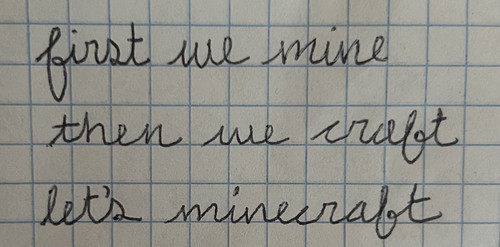 first we mine
then we craft
let's minecraft